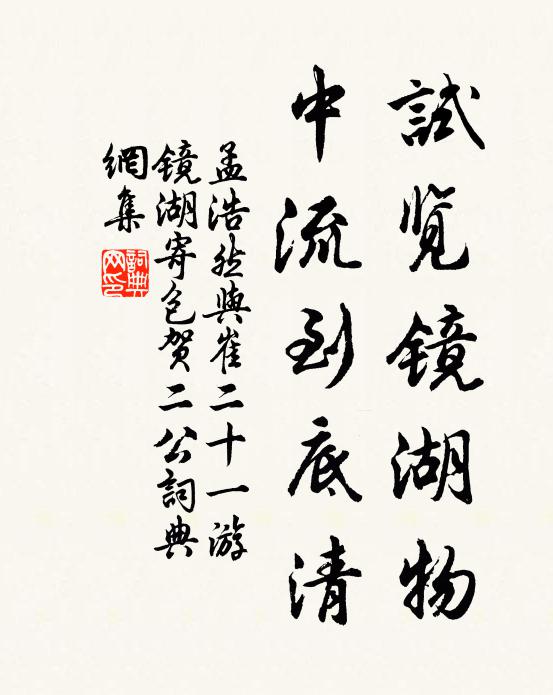 試览镜湖物
中流到底清
孟浩然與崔二十一游
镜湖寄包贺二公詞典
網集
詞典网印